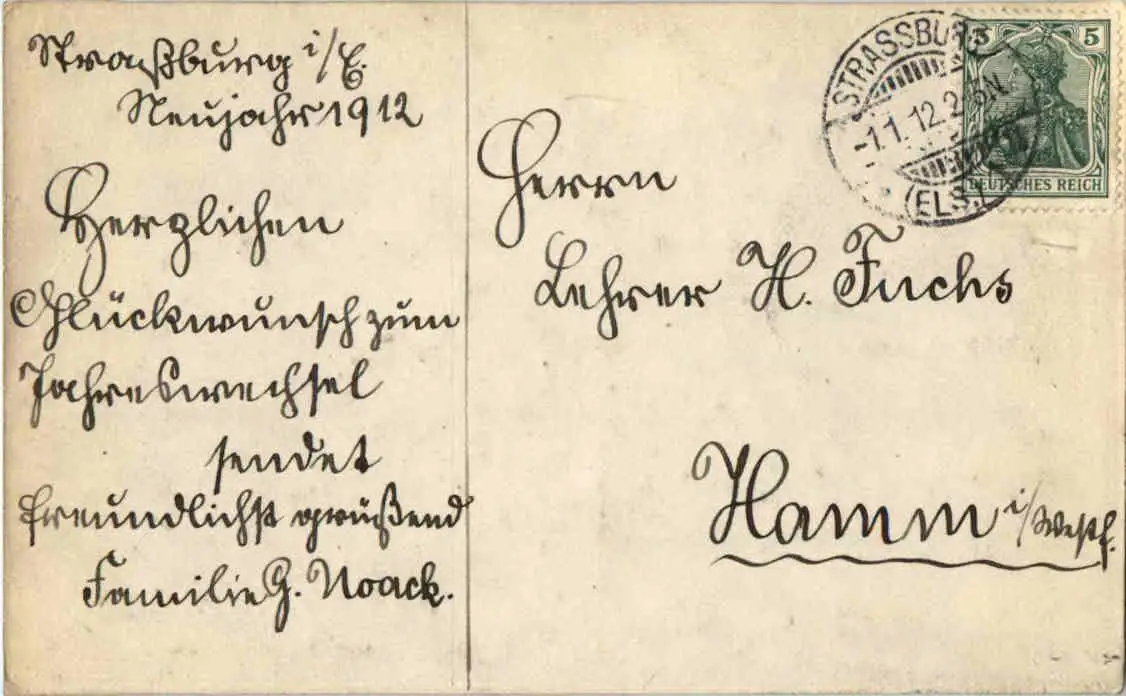 Straßburg i/E.
Neujahr 1912
Herzlichen
Glückwunsch zum
Jahreswechsel
sendet
freundlichst grüßend
Familie G. Noack.
Herrn
Lehrer H. Fuchs
Hamm i/Westf.
STRASSBURG
-1.1.12.2-3N
(ELS.)
5
DEUTSCHES REICH